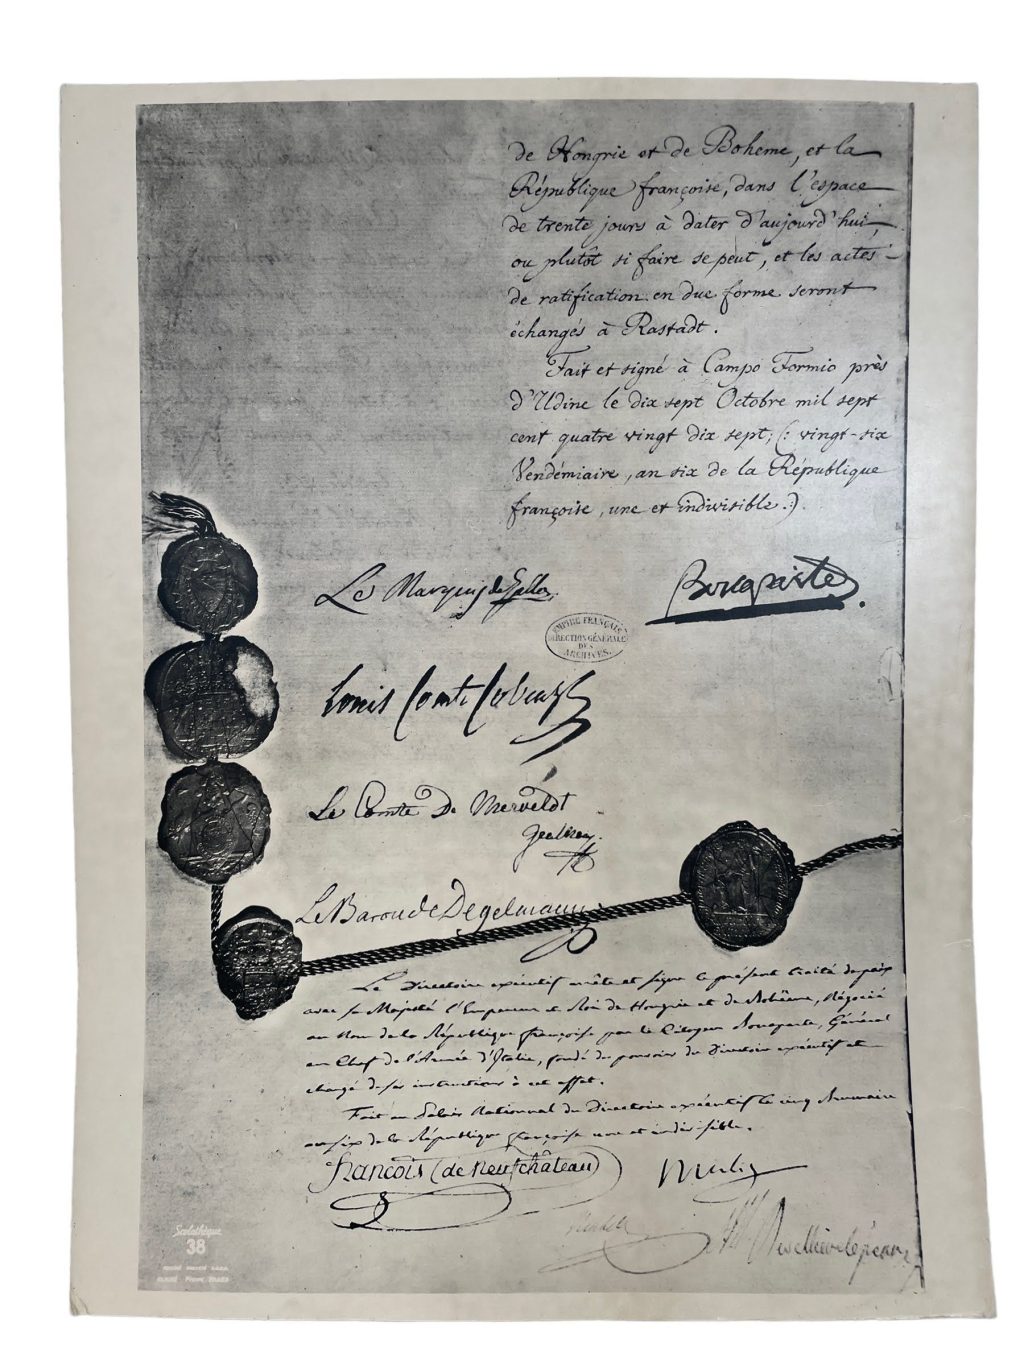 de Hongrie et de Boheme, et la
République françoise, dans l'espace
de trente jours à dater d'aujourd'hui,
ou plutôt si faire se peut, et les actes
de ratification en due forme seront
échangés à Rastadt.
Fait et signé à Campo Formio près
d'Udine le dix sept Octobre mil sept
cent quatre vingt dix sept; (: vingt-six
Vendémiaire, an six de la République
françoise, une et indivisible.:)
Le Marquis de Gallo.
Bonaparte
EMPIRE FRANÇAIS
DIRECTION GÉNÉRALE
DES
ARCHIVES.
Louis Comte Cobenzl
Le Comte De Merveldt
Le Baron de Degelmann
Le Directoire exécutif arrête et signe le présent traité de paix
avec sa Majesté l'Empereur et Roi de Hongrie et de Bohême, Négocié
au Nom de la République françoise par le Citoyen Bonaparte, Général
en Chef de l'Armée d'Italie, fondé de pouvoirs du Directoire exécutif et
chargé de ses instructions à cet effet.
Fait au Palais National du Directoire exécutif le cinq Brumaire
an six de la République françoise une et indivisible.
François (de neufchâteau)
Merlin
Scolathèque
38